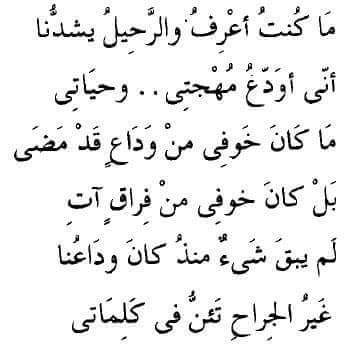 مَا كُنتُ أعْرِفُ والرَّحِيلُ يشدُّنا
أنّى أوَدّعُ مُهْجتِى .. وحيَاتِى
مَا كَانَ خَوفِى منْ وَدَاعٍ قَدْ مَضَى
بَلْ كانَ خوفِى منْ فِراقٍ آتِ
لَم يبقَ شَىءٌ منذُ كانَ ودَاعُنا
غَيرُ الجِراحِ تَئنُّ فى كَلِمَاتى